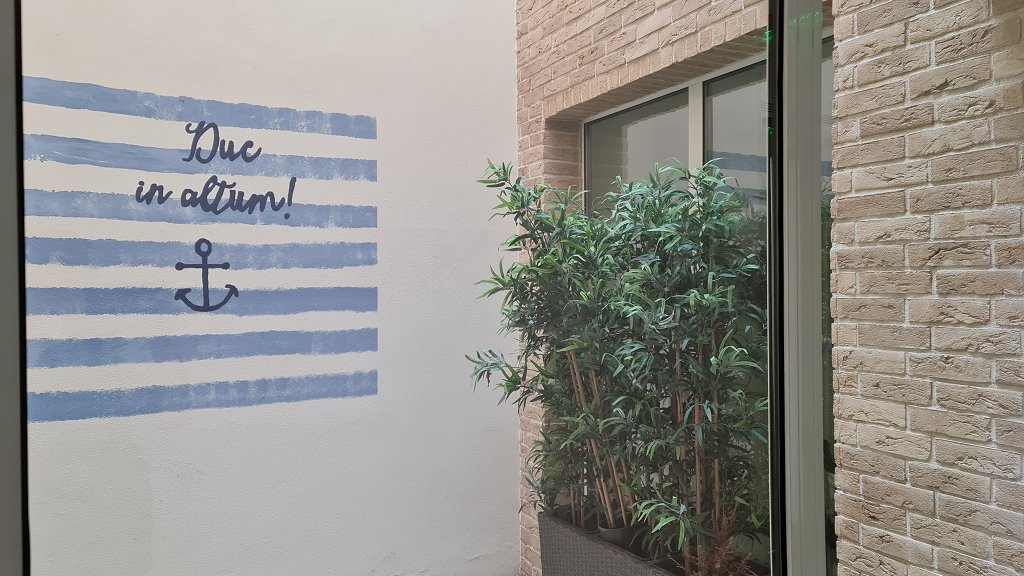 Duc
in altum!